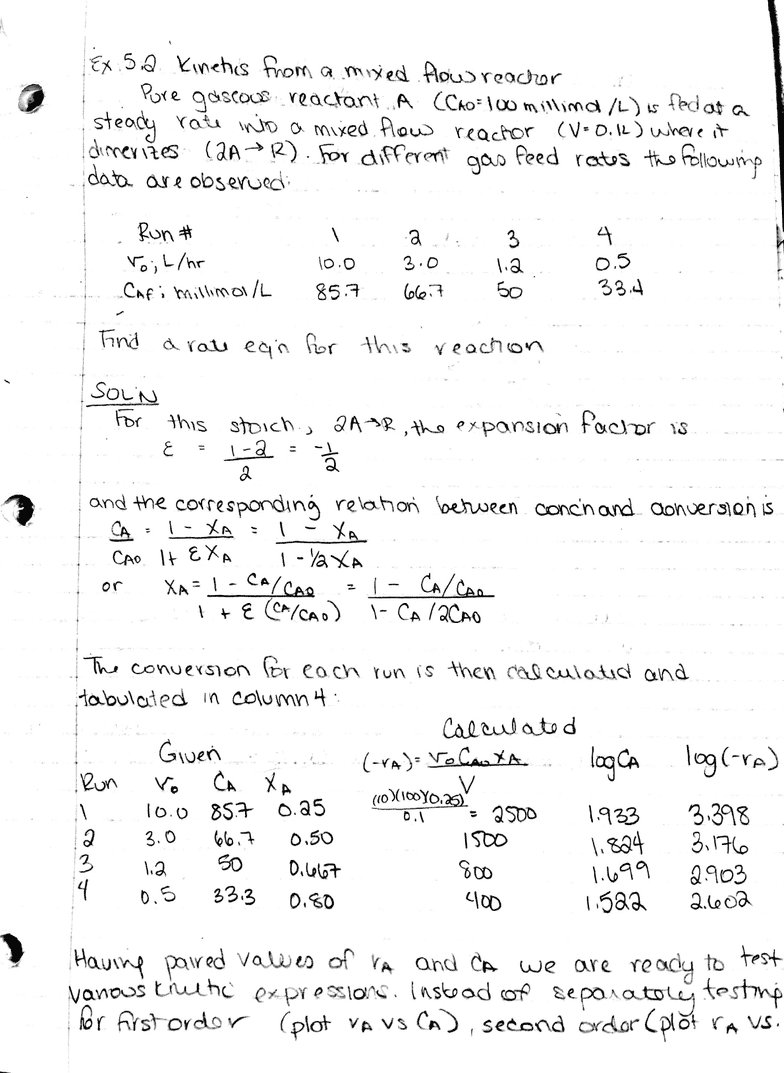 Ex 5.2 Kinetics from a mixed flow reactor
Pure gaseous reactant A (CA0=100 millimol/L) is fed at a
steady rate into a mixed flow reactor (V=0.1L) where it
dimerizes (2A→R). For different gas feed rates the following
data are observed:
Run # 1 2 3 4
v0; L/hr 10.0 3.0 1.2 0.5
CAf; millimol/L 85.7 66.7 50 33.4
Find a rate eq'n for this reaction
SOL'N
For this stoich, 2A→R, the expansion factor is
ε = (1-2)/2 = -1/2
and the corresponding relation between conc'n and conversion is
CA/CA0 = (1 - XA)/(1 + εXA) = (1 - XA)/(1 - 1/2 XA)
or XA = (1 - CA/CA0)/(1 + ε(CA/CA0)) = (1 - CA/CA0)/(1 - CA/2CA0)
The conversion for each run is then calculated and
tabulated in column 4:
Given Calculated
Run v0 CA XA (-rA) = v0CA0XA/V log CA log(-rA)
1 10.0 85.7 0.25 (10)(100)(0.25)/0.1 = 2500 1.933 3.398
2 3.0 66.7 0.50 1500 1.824 3.176
3 1.2 50 0.667 800 1.699 2.903
4 0.5 33.3 0.80 400 1.522 2.602
Having paired values of rA and CA we are ready to test
various kinetic expressions. Instead of separately testing
for first order (plot rA vs CA), second order (plot rA vs.